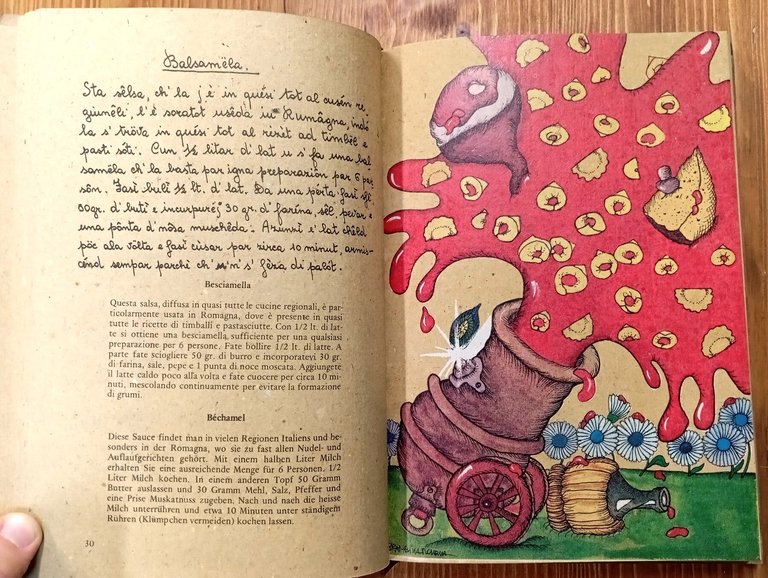 Balsamëla.
Sta sêlsa, ch' la j è in quési tot al cusén re
giunêli, l'è soratot usêda in Rumâgna, indó
la s' trôva in quési tot al rizèt ad timbël e
pasti sóti. Cun ½ litar d' lat u s' fa una bal
samëla ch' la basta par igna preparaziôn par 6 par
sôn. Fasì bulì ½ lt. d' lat. Da una pêrta fasì sfë
50gr. d' butì e incurpuréj 30 gr. d' farina, sêl, pévar e
una pônta d' nôsa muschêda. Azunzì e' lat chêld
pöc ala vôlta e fasì cùsar par zirca, 10 minut, armis-
cénd sempar parchè ch' u n' s' fëza di palöt.
Besciamella
Questa salsa, diffusa in quasi tutte le cucine regionali, è par-
ticolarmente usata in Romagna, dove è presente in quasi
tutte le ricette di timballi e pastasciutte. Con 1/2 lt. di lat-
te si ottiene una besciamella, sufficiente per una qualsiasi
preparazione per 6 persone. Fate bollire 1/2 lt. di latte. A
parte fate sciogliere 50 gr. di burro e incorporatevi 30 gr.
di farina, sale, pepe e 1 punta di noce moscata. Aggiungete
il latte caldo poco alla volta e fate cuocere per circa 10 mi-
nuti, mescolando continuamente per evitare la formazione
di grumi.
Béchamel
Diese Sauce findet man in vielen Regionen Italiens und be-
sonders in der Romagna, wo sie zu fast allen Nudel- und
Auflaufgerichten gehört. Mit einem halben Liter Milch
erhalten Sie eine ausreichende Menge für 6 Personen. 1/2
Liter Milch kochen. In einem anderen Topf 50 Gramm
Butter auslassen und 30 Gramm Mehl, Salz, Pfeffer und
eine Prise Muskatnuss zugeben. Nach und nach die heisse
Milch unterrühren und etwa 10 Minuten unter ständigem
Rühren (Klümpchen vermeiden) kochen lassen.
30